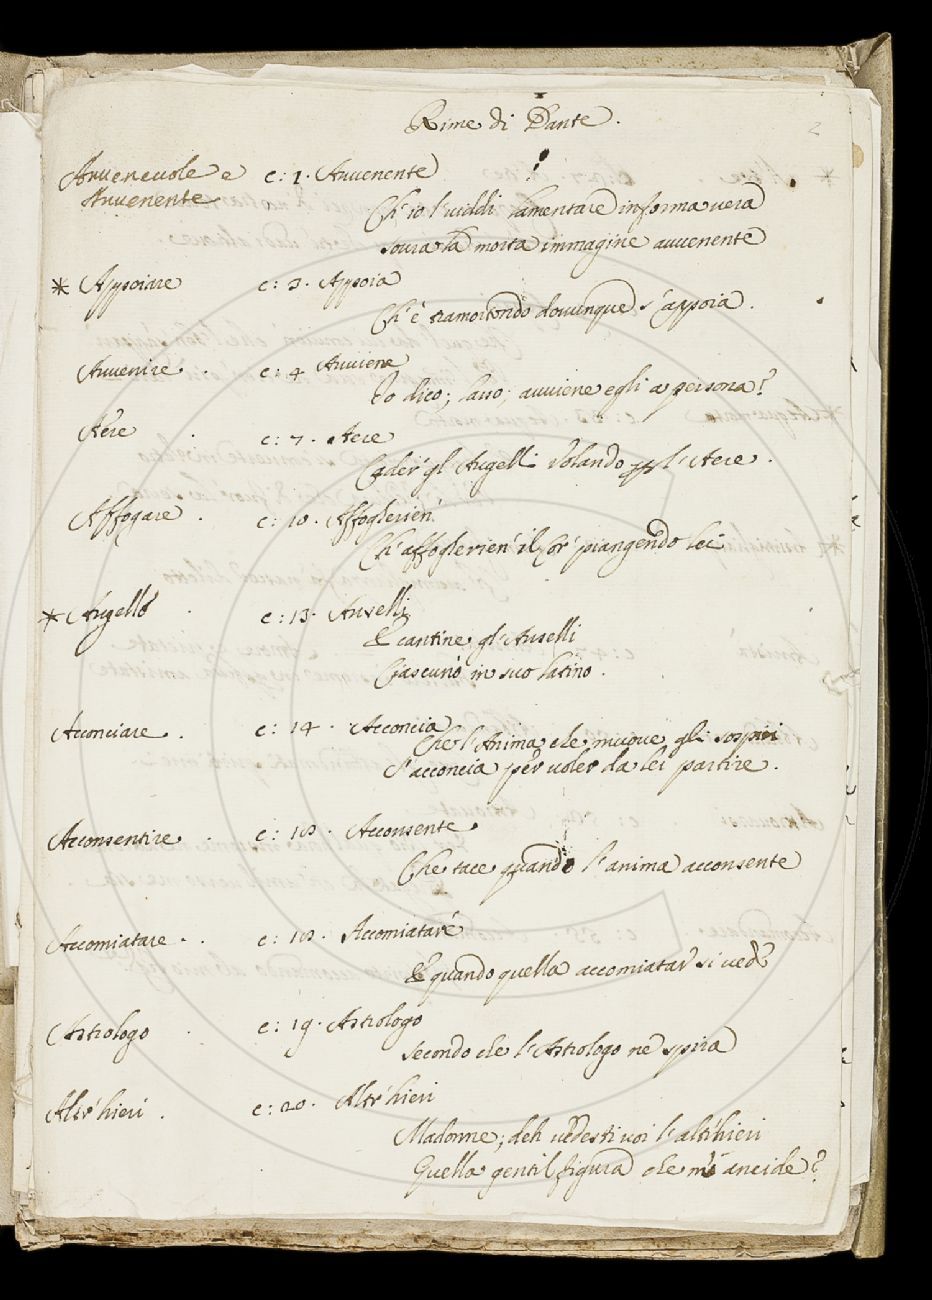 Rime di Dante.
2
Avvenevole e
Avvenente
c: 1. Avvenente
Ch'io l'viddi lamentare in forma vera
sovra la morta immagine avvenente
* Appoiare c: 3. Appoia
Ch'è tramortendo dovunque s'appoia.
Avvenire. c: 4 Avviene
Io dico; lasso; avviene egli a persona?
Aere. c: 7. Aere
Cader' gl'Augelli volando p l'Aere.
Affogare. c: 10. Affoglerien'
Ch'affoglerien' il Cor' piangendo lei
* Augello. c: 13. Auselli
E cantine gl'Auselli
Ciascuno in suo latino.
Acconciare. c: 14. Acconcia
Che l'Anima che muove gli sospiri
S'acconcia per voler da lei partire.
Acconsentire. c: 18. Acconsente
Che tace quando l'anima acconsente
Accomiatare. c: 18. Accomiatare
E quando quella accomiatar si vede
Astrologo. c: 19. Astrologo
secondo che l'Astrologo ne spira
Altr'hieri. c: 20. Altr'hieri
Madonne; deh vedesti voi l'altr'hieri
Quella gentil figura che m'ancide?